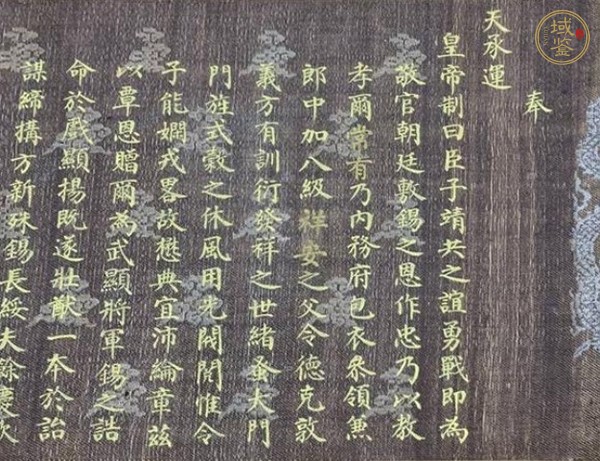 奉
天承運
皇帝制曰臣子靖共之誼勇戰即為
敬官朝廷敷錫之恩作忠乃以教
孝爾常有乃內務府包衣叅領兼
郎中加八級祥安之父令德克敦
義方有訓衍發祥之世緒蚤大門
門旌式榖之休風用光閥閱惟令
子能嫺戎畧故懋典宜沛綸章茲
以覃恩贈爾為武顯將軍錫之誥
命於戲顯揚既遂壯猷一本於詒
謀締構方新殊錫長綏夫餘慶欽
域鉴